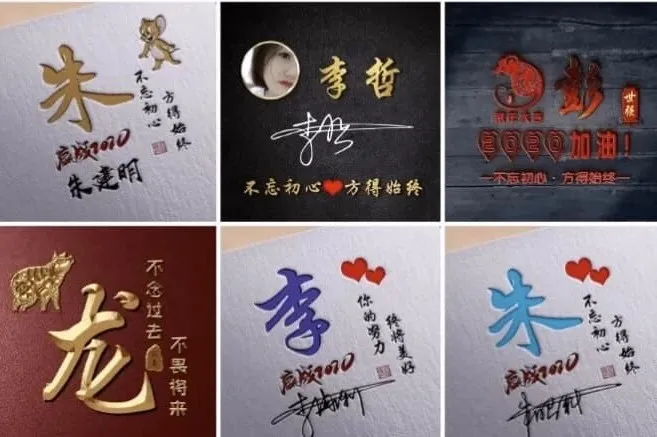 朱
不忘初心
方得始终
2020
朱建明
李哲
不忘初心❤方得始终
彭
世强
2020加油！
不忘初心·方得始终
龙
不念过去
不畏将来
李
你的努力
终将美好
2020
朱
不忘初心
方得始终
2020